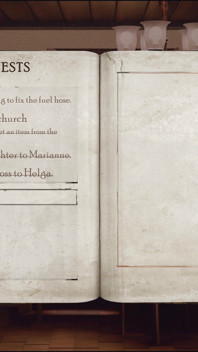 ESTS
g to fix the fuel hose.
church
et an item from the
hter to Marianne.
oss to Helga.